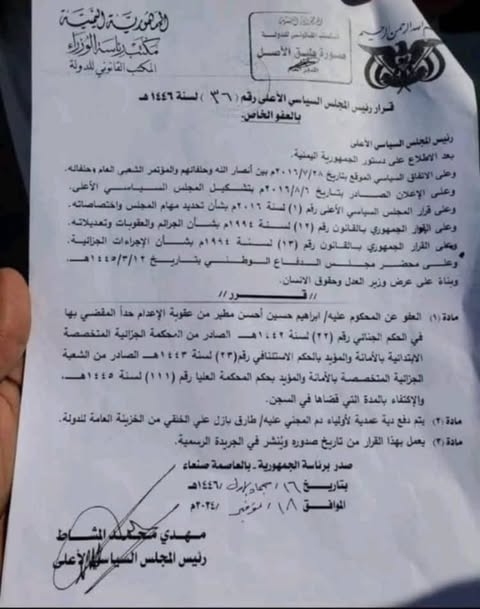 بسم الله الرحمن الرحيم
الجمهورية اليمنية
مكتب رئاسة الوزراء
المكتب القانوني للدولة
الجمهورية اليمنية
صورة طبق الأصل
قرار رئيس المجلس السياسي الأعلى رقم (٣٦) لسنة ١٤٤٦هـ
بالعفو الخاص.
رئيس المجلس السياسي الأعلى
بعد الاطلاع على دستور الجمهورية اليمنية.
وعلى الاتفاق السياسي الموقع بتاريخ ٢٠١٦/٧/٢٨م بين أنصار الله وحلفائهم والمؤتمر الشعبي العام وحلفائه.
وعلى الإعلان الصادر بتاريخ ٢٠١٦/٨/٦م بتشكيل المجلس السياسي الأعلى.
وعلى قرار المجلس السياسي الأعلى رقم (١) لسنة ٢٠١٦م بشأن تحديد مهام المجلس واختصاصاته.
وعلى القرار الجمهوري بالقانون رقم (١٢) لسنة ١٩٩٤م بشأن الجرائم والعقوبات وتعديلاته.
وعلى القرار الجمهوري بالقانون رقم (١٣) لسنة ١٩٩٤م بشأن الإجراءات الجزائية.
وعلى محضر مجلس الدفاع الوطني بتاريخ ١٤٤٥/٣/١٢هـ.
وبناءً على عرض وزير العدل وحقوق الانسان.
// قـــــرر //
مادة (١) العفو عن المحكوم عليه/ ابراهيم حسين أحسن مطير من عقوبة الإعدام حداً المقضي بها
في الحكم الجنائي رقم (٢٢) لسنة ١٤٤٢هـ الصادر من المحكمة الجزائية المتخصصة
الابتدائية بالأمانة والمؤيد بالحكم الاستئنافي رقم(٢٣) لسنة ١٤٤٣هـ الصادر من الشعبة
الجزائية المتخصصة بالأمانة والمؤيد بحكم المحكمة العليا رقم (١١١) لسنة ١٤٤٥هـ،
والإكتفاء بالمدة التي قضاها في السجن.
مادة (٢) يتم دفع دية عمدية لأولياء دم المجني عليه/ طارق بازل علي الخلقي من الخزينة العامة للدولة.
مادة (٣) يعمل بهذا القرار من تاريخ صدوره ويُنشر في الجريدة الرسمية.
صدر برئاسة الجمهورية ـ بالعاصمة صنعاء
بتاريخ ١٦/ جماد الاول /١٤٤٦هـ
الموافق ١٨/ نوفمبر /٢٠٢٤م
مهدي محمد المشاط
رئيس المجلس السياسي الأعلى